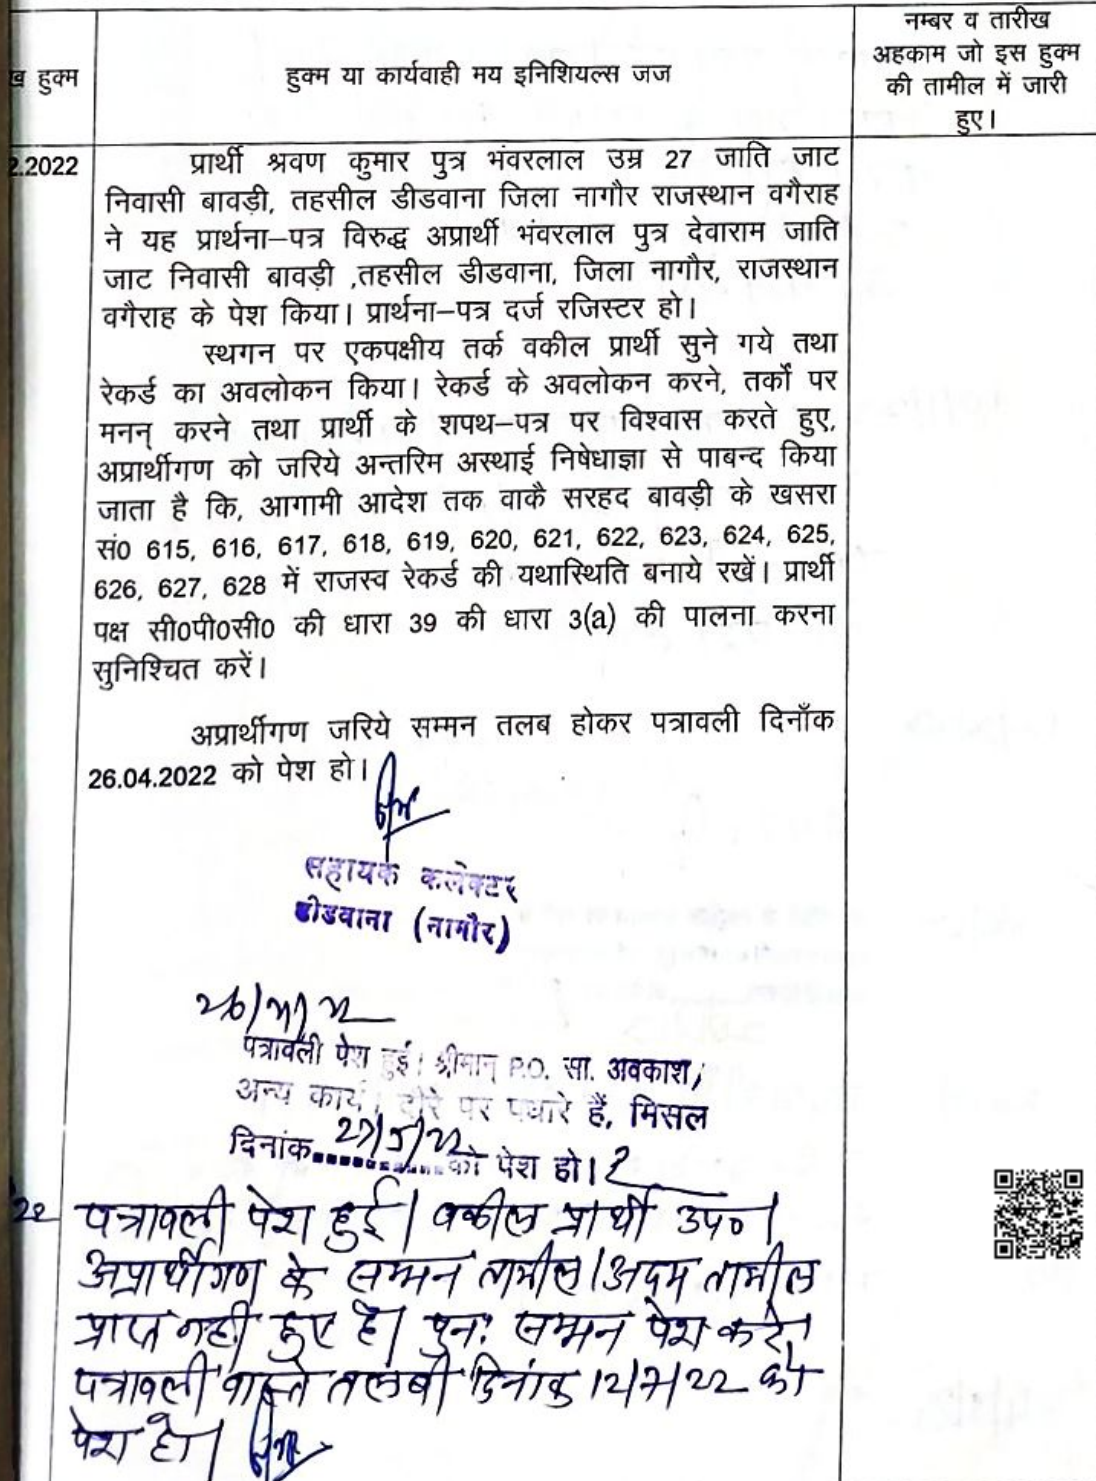 नम्बर व तारीख
अहकाम जो इस हुक्म
की तामील में जारी
हुए।
हुक्म
हुक्म या कार्यवाही मय इनिशियल्स जज
2.2022
प्रार्थी श्रवण कुमार पुत्र भंवरलाल उम्र 27 जाति जाट
निवासी बावड़ी, तहसील डीडवाना जिला नागौर राजस्थान वगैराह
ने यह प्रार्थना–पत्र विरुद्ध अप्रार्थी भंवरलाल पुत्र देवाराम जाति
जाट निवासी बावड़ी ,तहसील डीडवाना, जिला नागौर, राजस्थान
वगैराह के पेश किया। प्रार्थना–पत्र दर्ज रजिस्टर हो।
स्थगन पर एकपक्षीय तर्क वकील प्रार्थी सुने गये तथा
रेकर्ड का अवलोकन किया। रेकर्ड के अवलोकन करने, तर्कों पर
मनन् करने तथा प्रार्थी के शपथ–पत्र पर विश्वास करते हुए,
अप्रार्थीगण को जरिये अन्तरिम अस्थाई निषेधाज्ञा से पाबन्द किया
जाता है कि, आगामी आदेश तक वाकै सरहद बावड़ी के खसरा
सं0 615, 616, 617, 618, 619, 620, 621, 622, 623, 624, 625,
626, 627, 628 में राजस्व रेकर्ड की यथास्थिति बनाये रखें। प्रार्थी
पक्ष सी0पी0सी0 की धारा 39 की धारा 3(a) की पालना करना
सुनिश्चित करें।
अप्रार्थीगण जरिये सम्मन तलब होकर पत्रावली दिनाँक
26.04.2022 को पेश हो।
सहायक कलेक्टर
डीडवाना (नागौर)
पत्रावली पेश हुई। श्रीमान् P.O. सा. अवकाश,
अन्य कार्य। दौरे पर पधारे हैं, मिसल
दिनांक 27/5/22 को पेश हो।
22 पत्रावली पेश हुई। वकील प्रार्थी उप०।
अप्रार्थीगण के सम्मन तामील/अदम तामील
प्राप्त नहीं हुए है। पुनः सम्मन पेश करे।
पत्रावली वास्ते तलबी दिनांक 12/7/22 को
पेश हो।